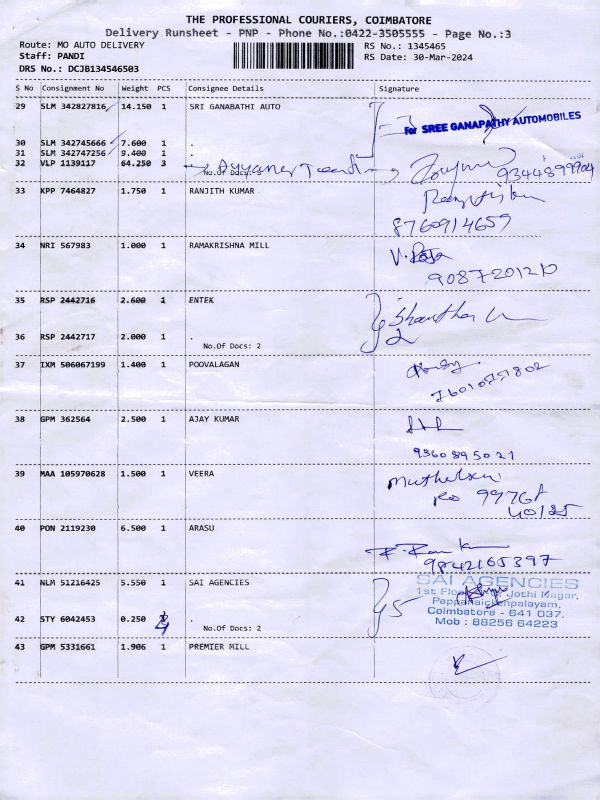 THE PROFESSIONAL COURIERS, COIMBATORE
Delivery Runsheet - PNP - Phone No.:0422-3505555 - Page No.:3
Route: MO AUTO DELIVERY RS No.: 1345465
Staff: PANDI RS Date: 30-Mar-2024
DRS No.: DCJB134546503
S No Consignment No Weight PCS Consignee Details Signature
29 SLM 342827816 14.150 1 SRI GANABATHI AUTO
For SREE GANAPATHY AUTOMOBILES
30 SLM 342745666 7.600 1 .
31 SLM 342747256 9.400 1 .
32 VLP 1139117 64.250 3
No.Of Docs:
33 KPP 7464827 1.750 1 RANJITH KUMAR
8760914659
34 NRI 567983 1.000 1 RAMAKRISHNA MILL V. Raja
9087201210
35 RSP 2442716 2.600 1 ENTEK
36 RSP 2442717 2.000 1 . 2
No.Of Docs: 2
37 IXM 506067199 1.400 1 POOVALAGAN
38 GPM 362564 2.500 1 AJAY KUMAR
9360895021
39 MAA 105970628 1.500 1 VEERA
40 PON 2119230 6.500 1 ARASU
9842165397
41 NLM 51216425 5.550 1 SAI AGENCIES SAI AGENCIES
Jothi Nagar,
Pappanaickenpalayam,
Coimbatore - 641 037.
Mob : 88256 64223
42 STY 6042453 0.250 .
No.Of Docs: 2
43 GPM 5331661 1.906 1 PREMIER MILL